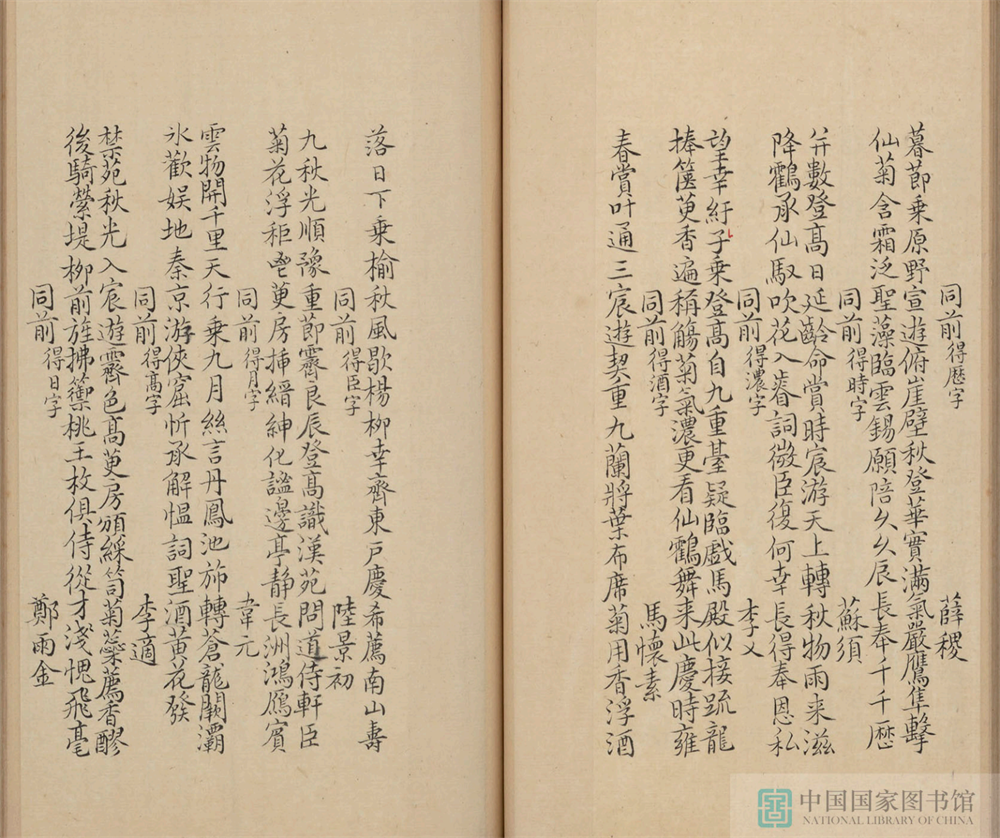 同前得歷字 薛稷
暮節乗原野宣遊俯崖壁秋登華實滿氣嚴鷹隼擊
仙菊含霜泛聖藻臨雲錫願陪久久辰長奉千千歴
同前得時字 蘇須
并數登髙日延齡命賞時宸游天上轉秋物雨来滋
降鶴承仙馭吹花入睿詞微臣復何幸長得奉恩私
同前得濃字 李乂
望幸紆子乗登髙自九重臺疑臨戲馬殿似接䟽龍
捧篋萸香遍稱觴菊氣濃更看仙鶴舞来此慶時雍
同前得酒字 馬懷素
春賞叶通三宸遊契重九蘭將葉布席菊用香浮酒
落日下乗榆秋風歇楊柳幸齊東戸慶希薦南山壽
同前得臣字 陸景初
九秋光順豫重節霽良辰登髙識漢苑問道侍軒臣
菊花浮秬鬯萸房揷縉紳化謐邊亭静長洲鴻鴈賓
同前得月字 韋元
雲物開千里天行乗九月絲言丹鳳池斾轉蒼龍闕灞
氷歡娱地秦京游俠窟忻承解愠詞聖酒黄花發
同前得髙字 李適
禁苑秋光入宸遊霽色髙萸房頒綵笥菊蘂薦香醪
後騎縈堤柳前旌拂籞桃王枚俱侍從才淺愧飛毫
同前得日字 鄭雨金
中国国家图书馆
NATIONAL LIBRARY OF CHINA